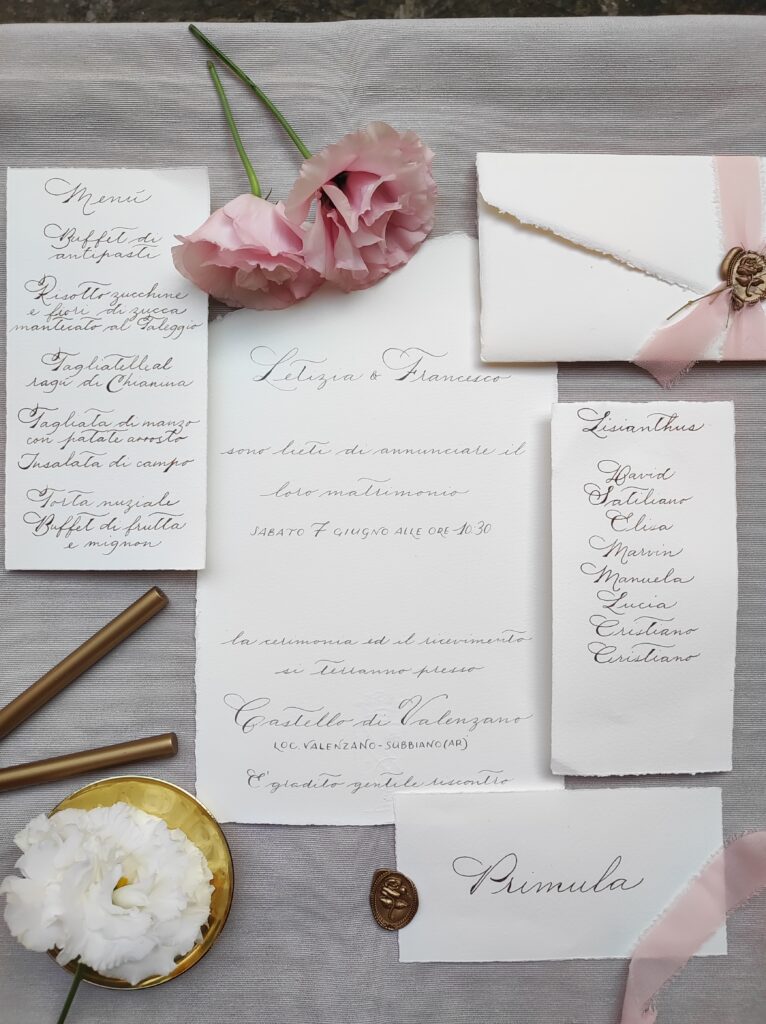 Menú
Buffet di
antipasti
Risotto zucchine
e fiori di zucca
mantecato al Taleggio
Tagliatelle al
ragú di Chianina
Tagliata di manzo
con patate arrosto
Insalata di campo
Torta nuziale
Buffet di frutta
e mignon
Letizia & Francesco
sono lieti di annunciare il
loro matrimonio
SABATO 7 GIUGNO ALLE ORE 10.30
la cerimonia ed il ricevimento
si terranno presso
Castello di Valenzano
LOC. VALENZANO - SUBBIANO (AR)
E' gradito gentile riscontro
Lisianthus
David
Satiliano
Elisa
Marvin
Manuela
Lucia
Cristiano
Cristiano
Primula